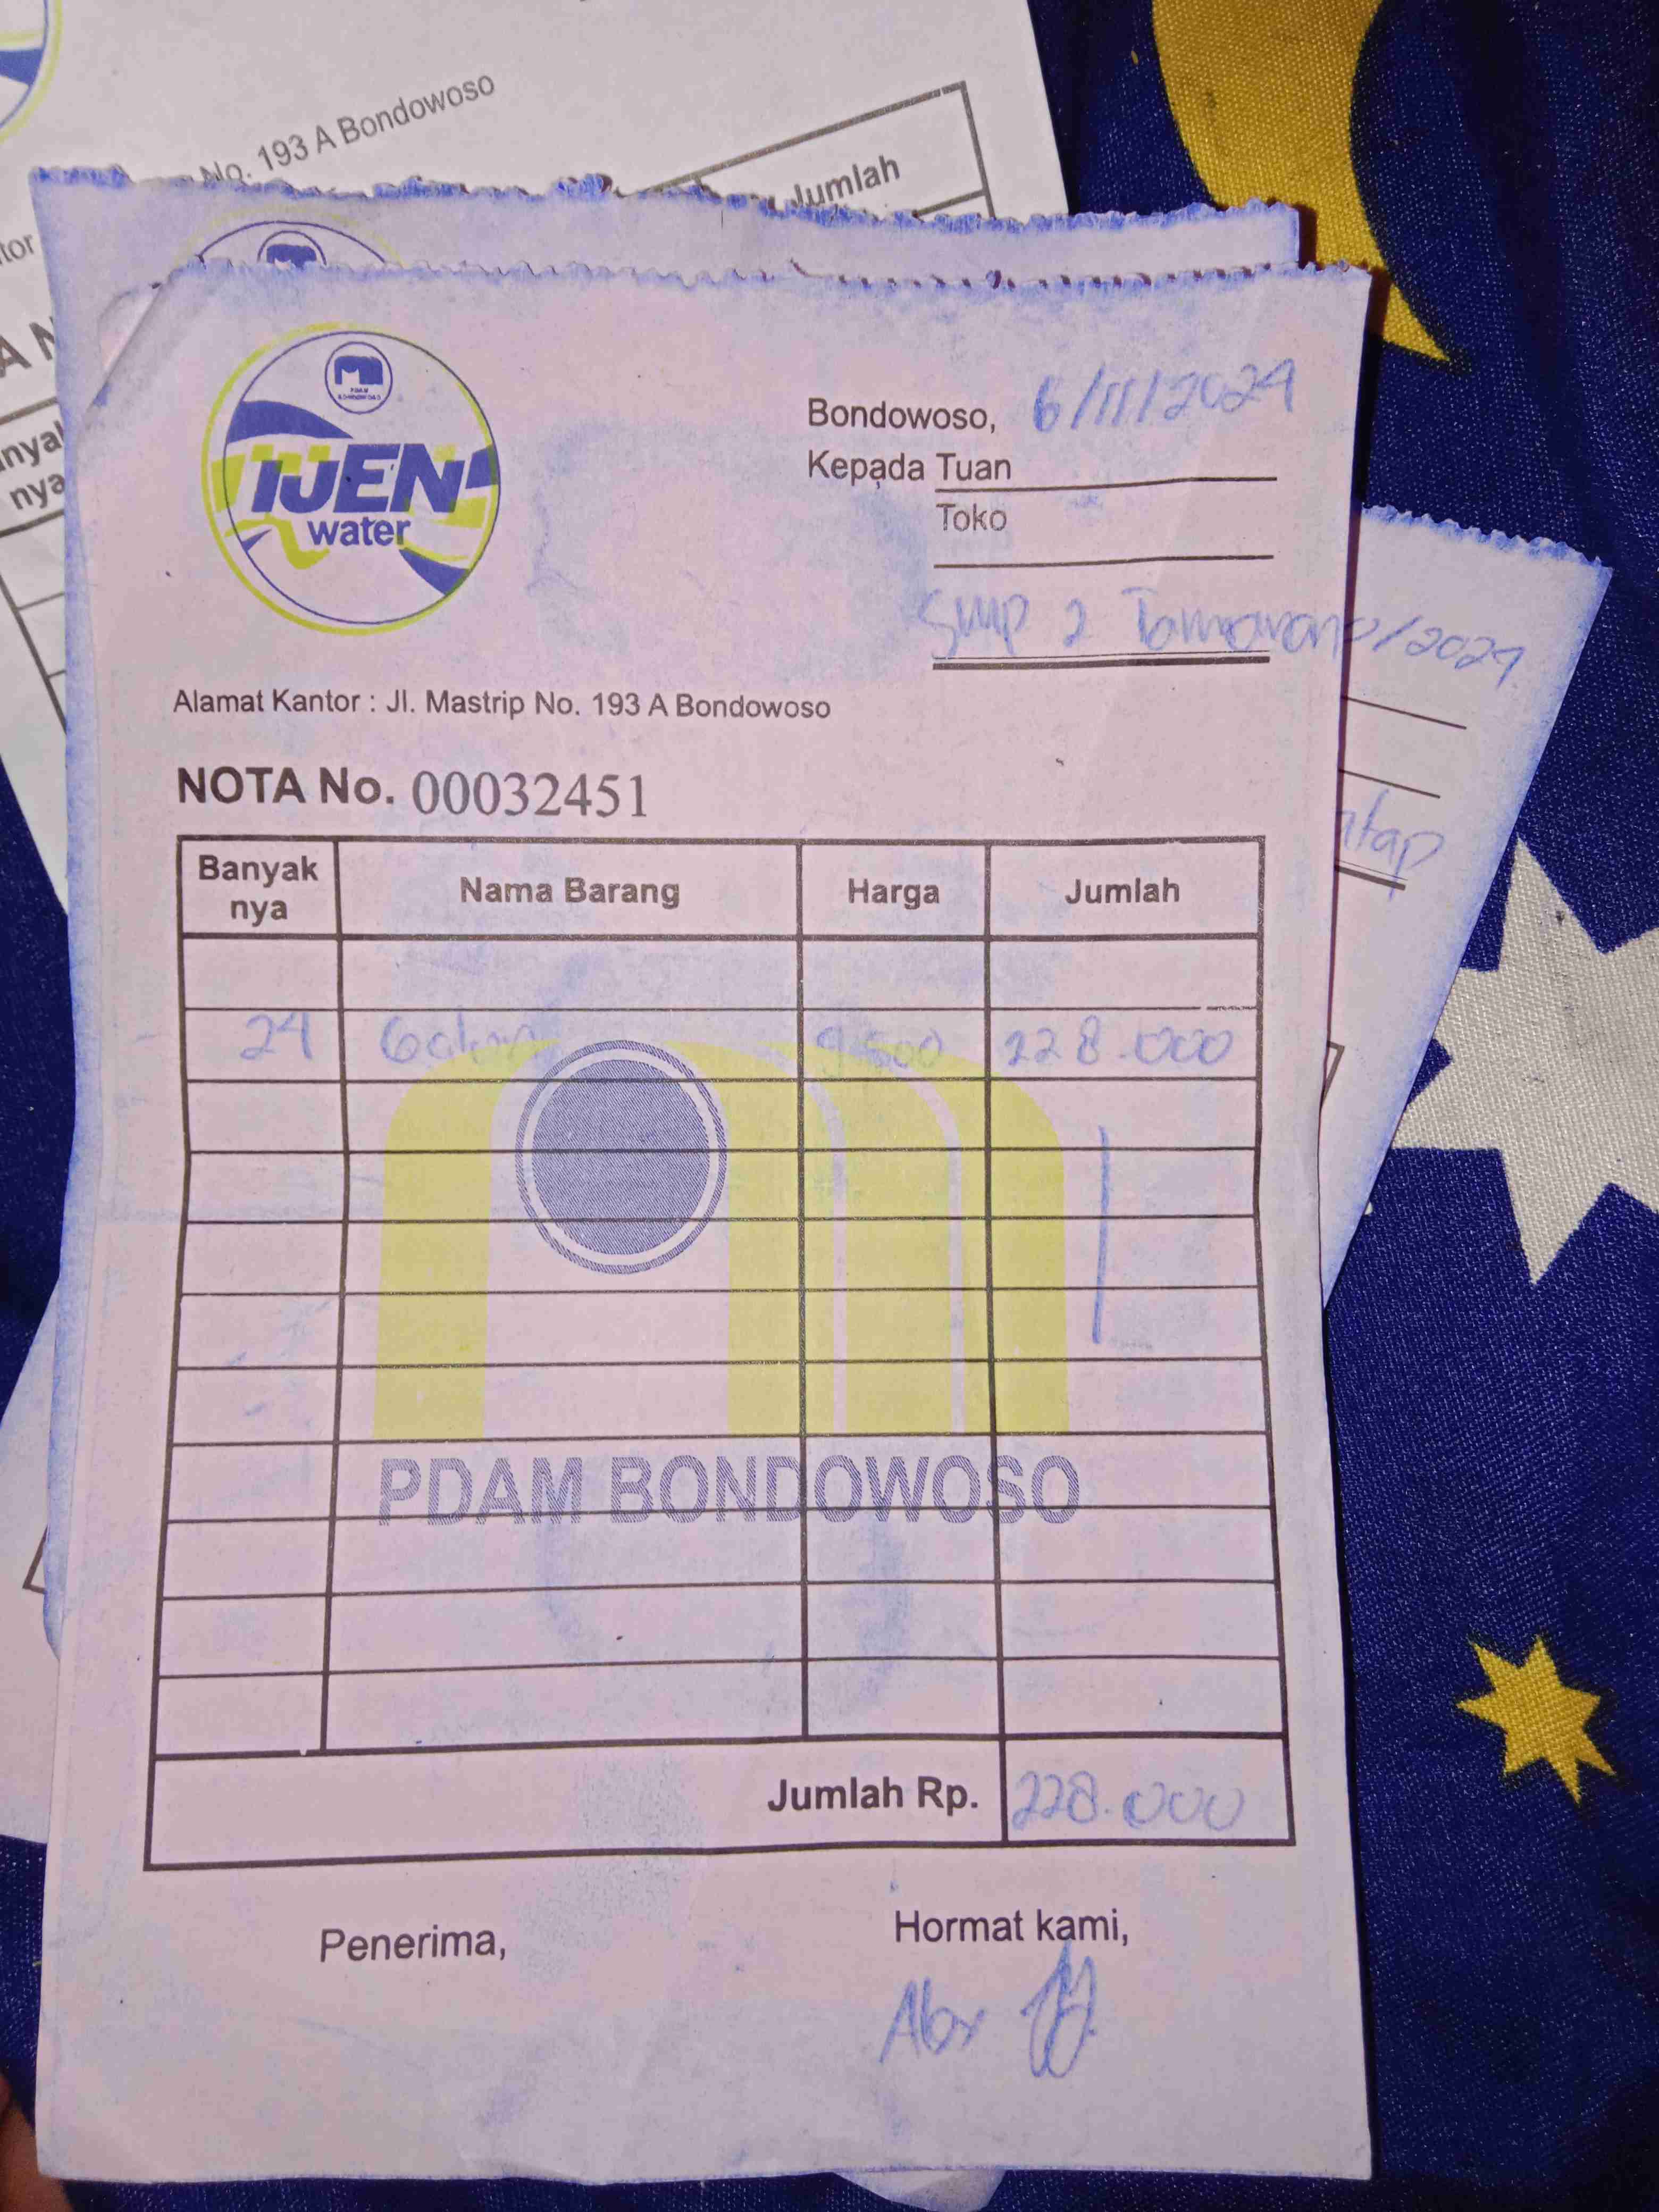 No. 193 A Bondowoso
Jumlah
PDAM
BONDOWOSO
IJEN
water
Bondowoso, 6/11/2024
Kepada Tuan
Toko
SMP 2 Tamanan
/2024
Alamat Kantor : Jl. Mastrip No. 193 A Bondowoso
NOTA No. 00032451
Banyak nya Nama Barang Harga Jumlah
24 Galon 9.500 228.000
PDAM BONDOWOSO
Jumlah Rp. 228.000
Penerima, Hormat kami,